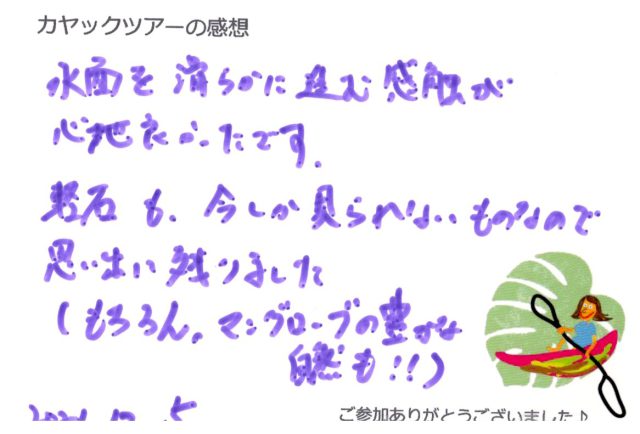 カヤックツアーの感想
水面を滑らかに進む感触が
心地良かったです.
軽石も、今しか見られないものなので
思い出い残りました
(もちろん。マングローブの豊かな
自然も!!)
ご参加ありがとうございました♪